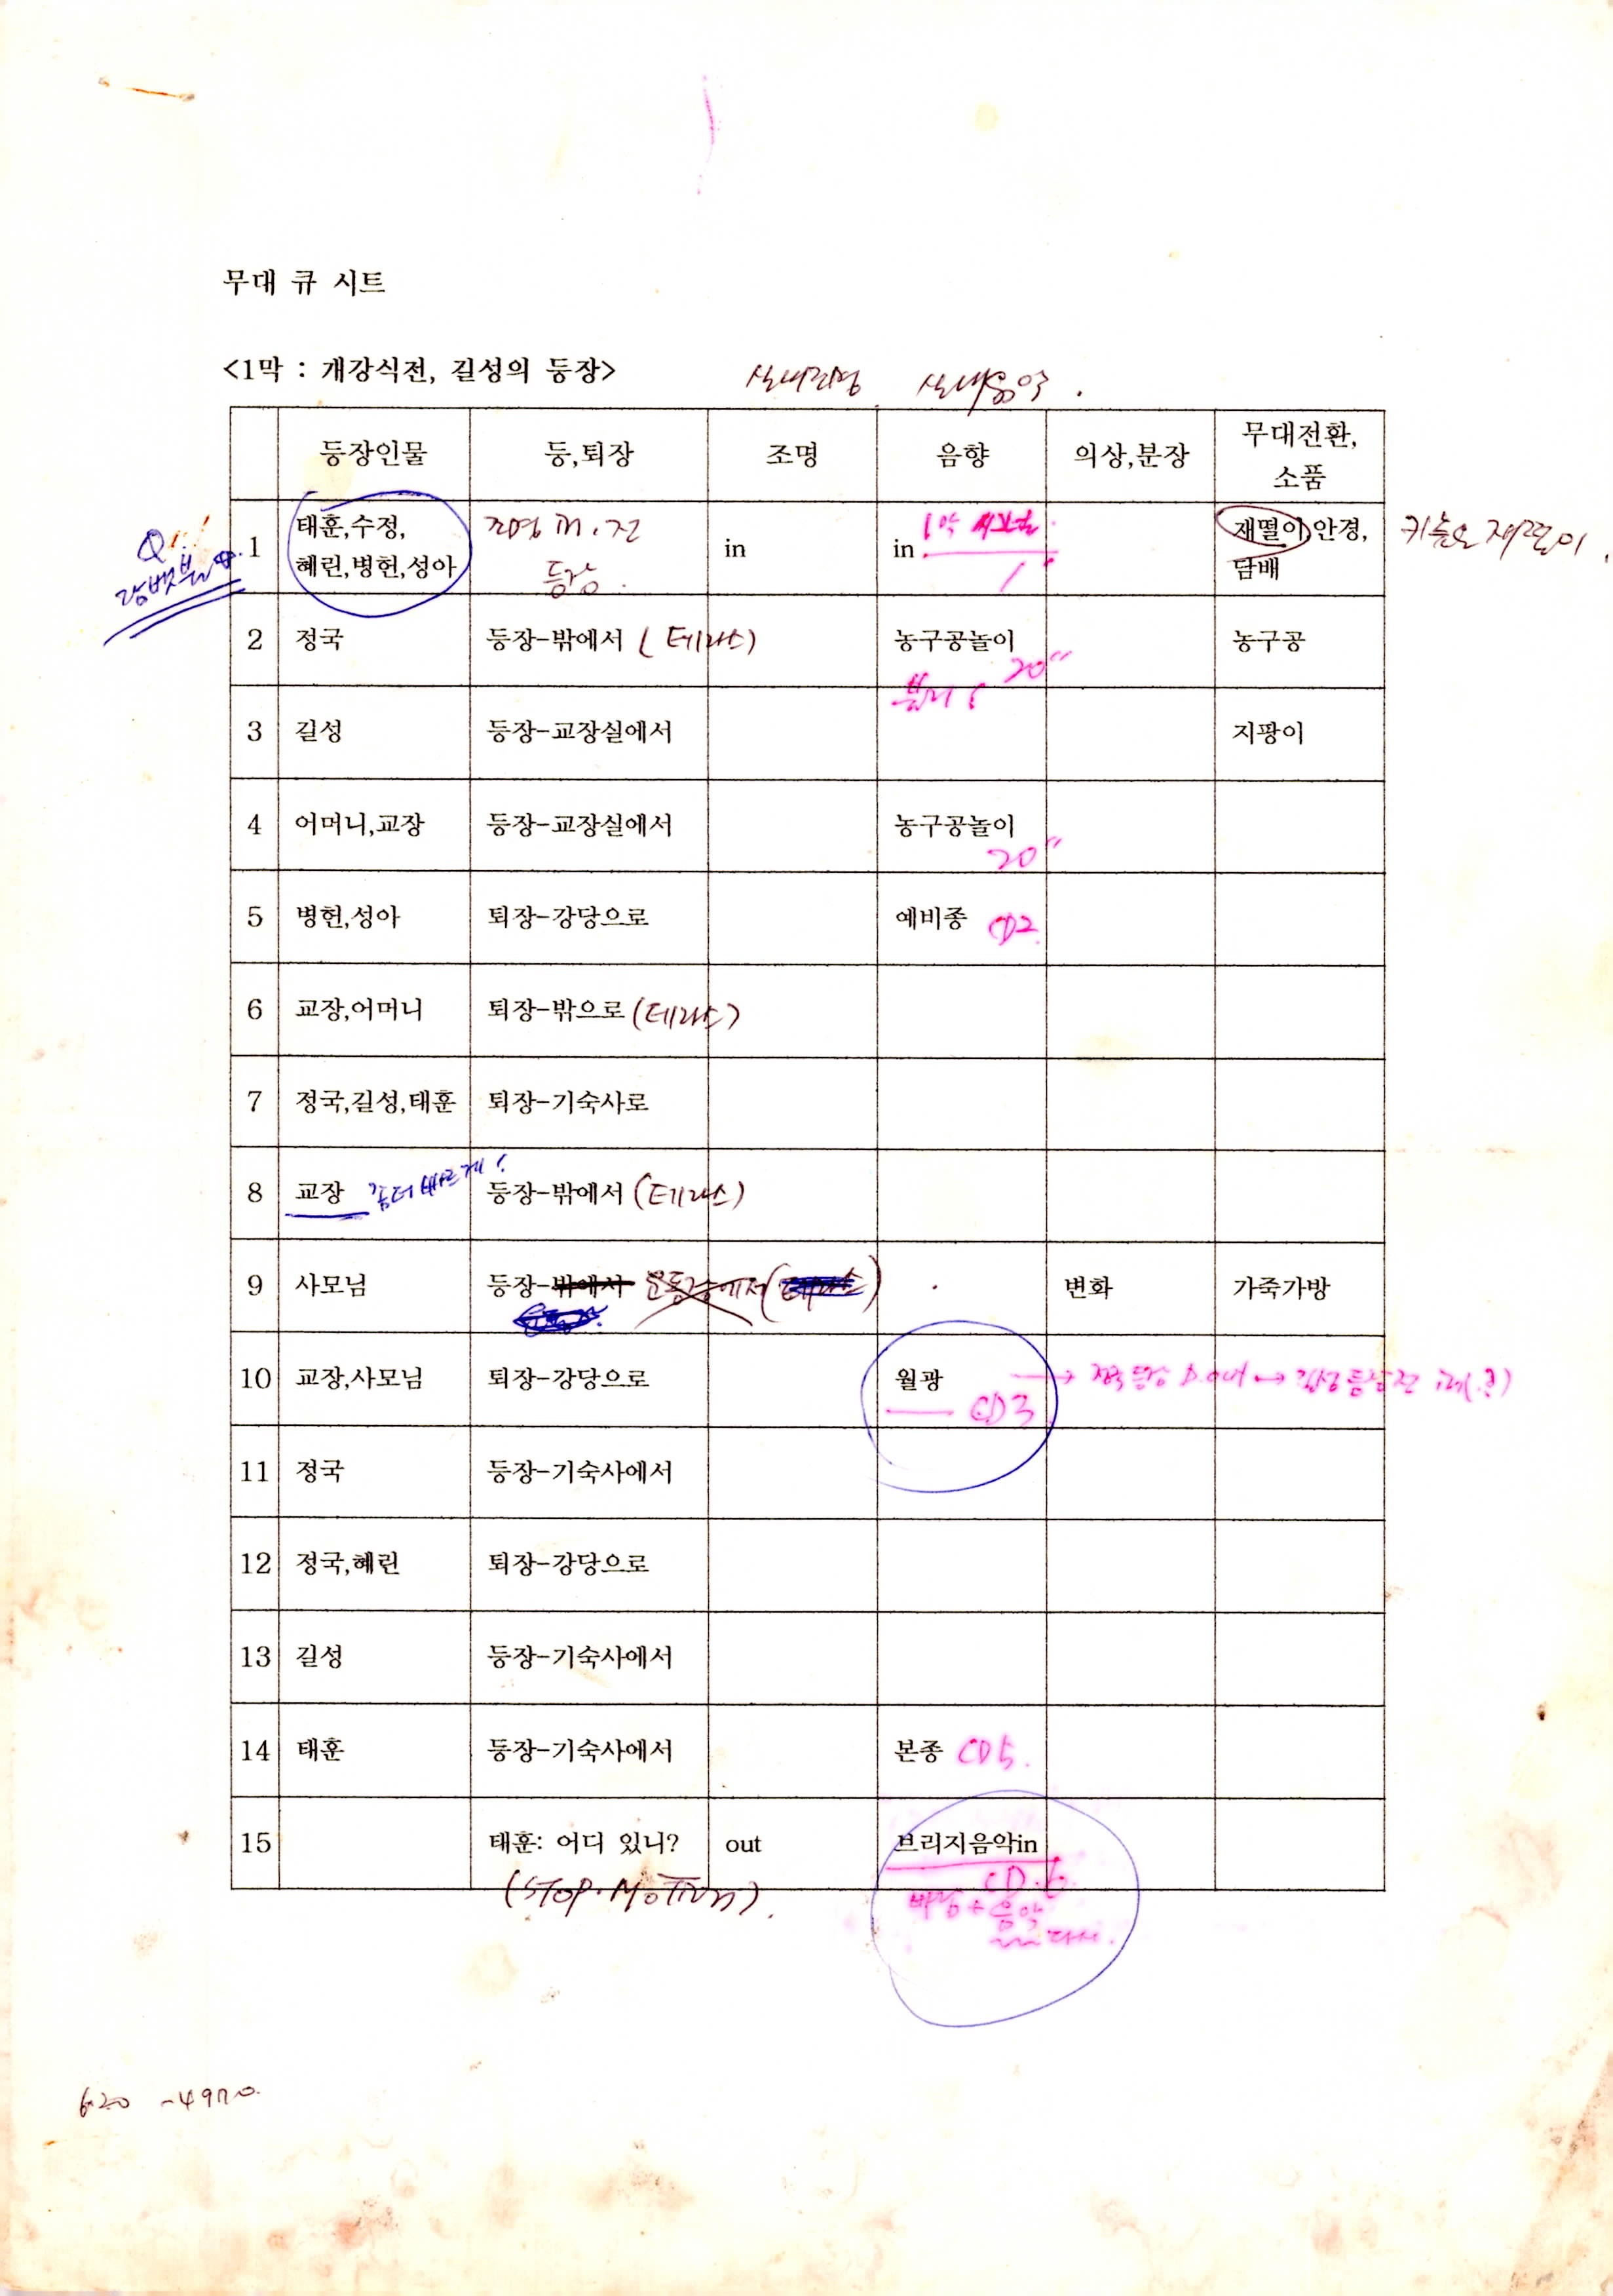 무대 큐 시트
<1막 : 개강식전, 길성의 등장>
실내조명 실내음악.
등장인물 등,퇴장 조명 음향 의상,분장 무대전환,
소품
Q!!
1 태훈,수정, 조명 in.전 in in 1막 재떨이,안경, 키높은 재떨이.
혜린,병헌,성아 등장. 담배
2 정국 등장-밖에서 (테라스) 농구공놀이 농구공
20"
3 길성 등장-교장실에서 지팡이
4 어머니,교장 등장-교장실에서 농구공놀이
20"
5 병헌,성아 퇴장-강당으로 예비종 CD2.
6 교장,어머니 퇴장-밖으로 (테라스)
7 정국,길성,태훈 퇴장-기숙사로
8 교장 좀더 빠르게! 등장-밖에서 (테라스)
9 사모님 등장-밖에서 운동장에서 (테라스) 변화 가죽가방
10 교장,사모님 퇴장-강당으로 월광 → 정국 등장
CD3
11 정국 등장-기숙사에서
12 정국,혜린 퇴장-강당으로
13 길성 등장-기숙사에서
14 태훈 등장-기숙사에서 본종 CD5.
15 태훈: 어디 있니? out 브리지음악in
(STOP.MOTION). CD.6
음악
다시.
6:20